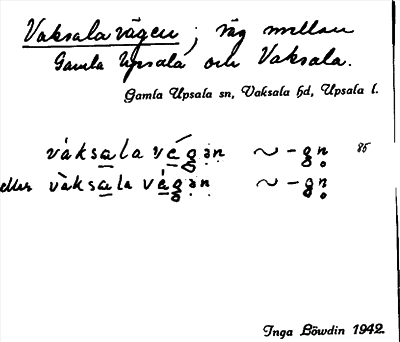 Vaksalavägen; väg mellan
Gamla Upsala och Vaksala.
Gamla Upsala sn, Vaksala hd, Upsala l.
váksala végən ~ -gn̥ 85
eller vàksala végən ~ -gn̥
Inga Löwdin 1942.